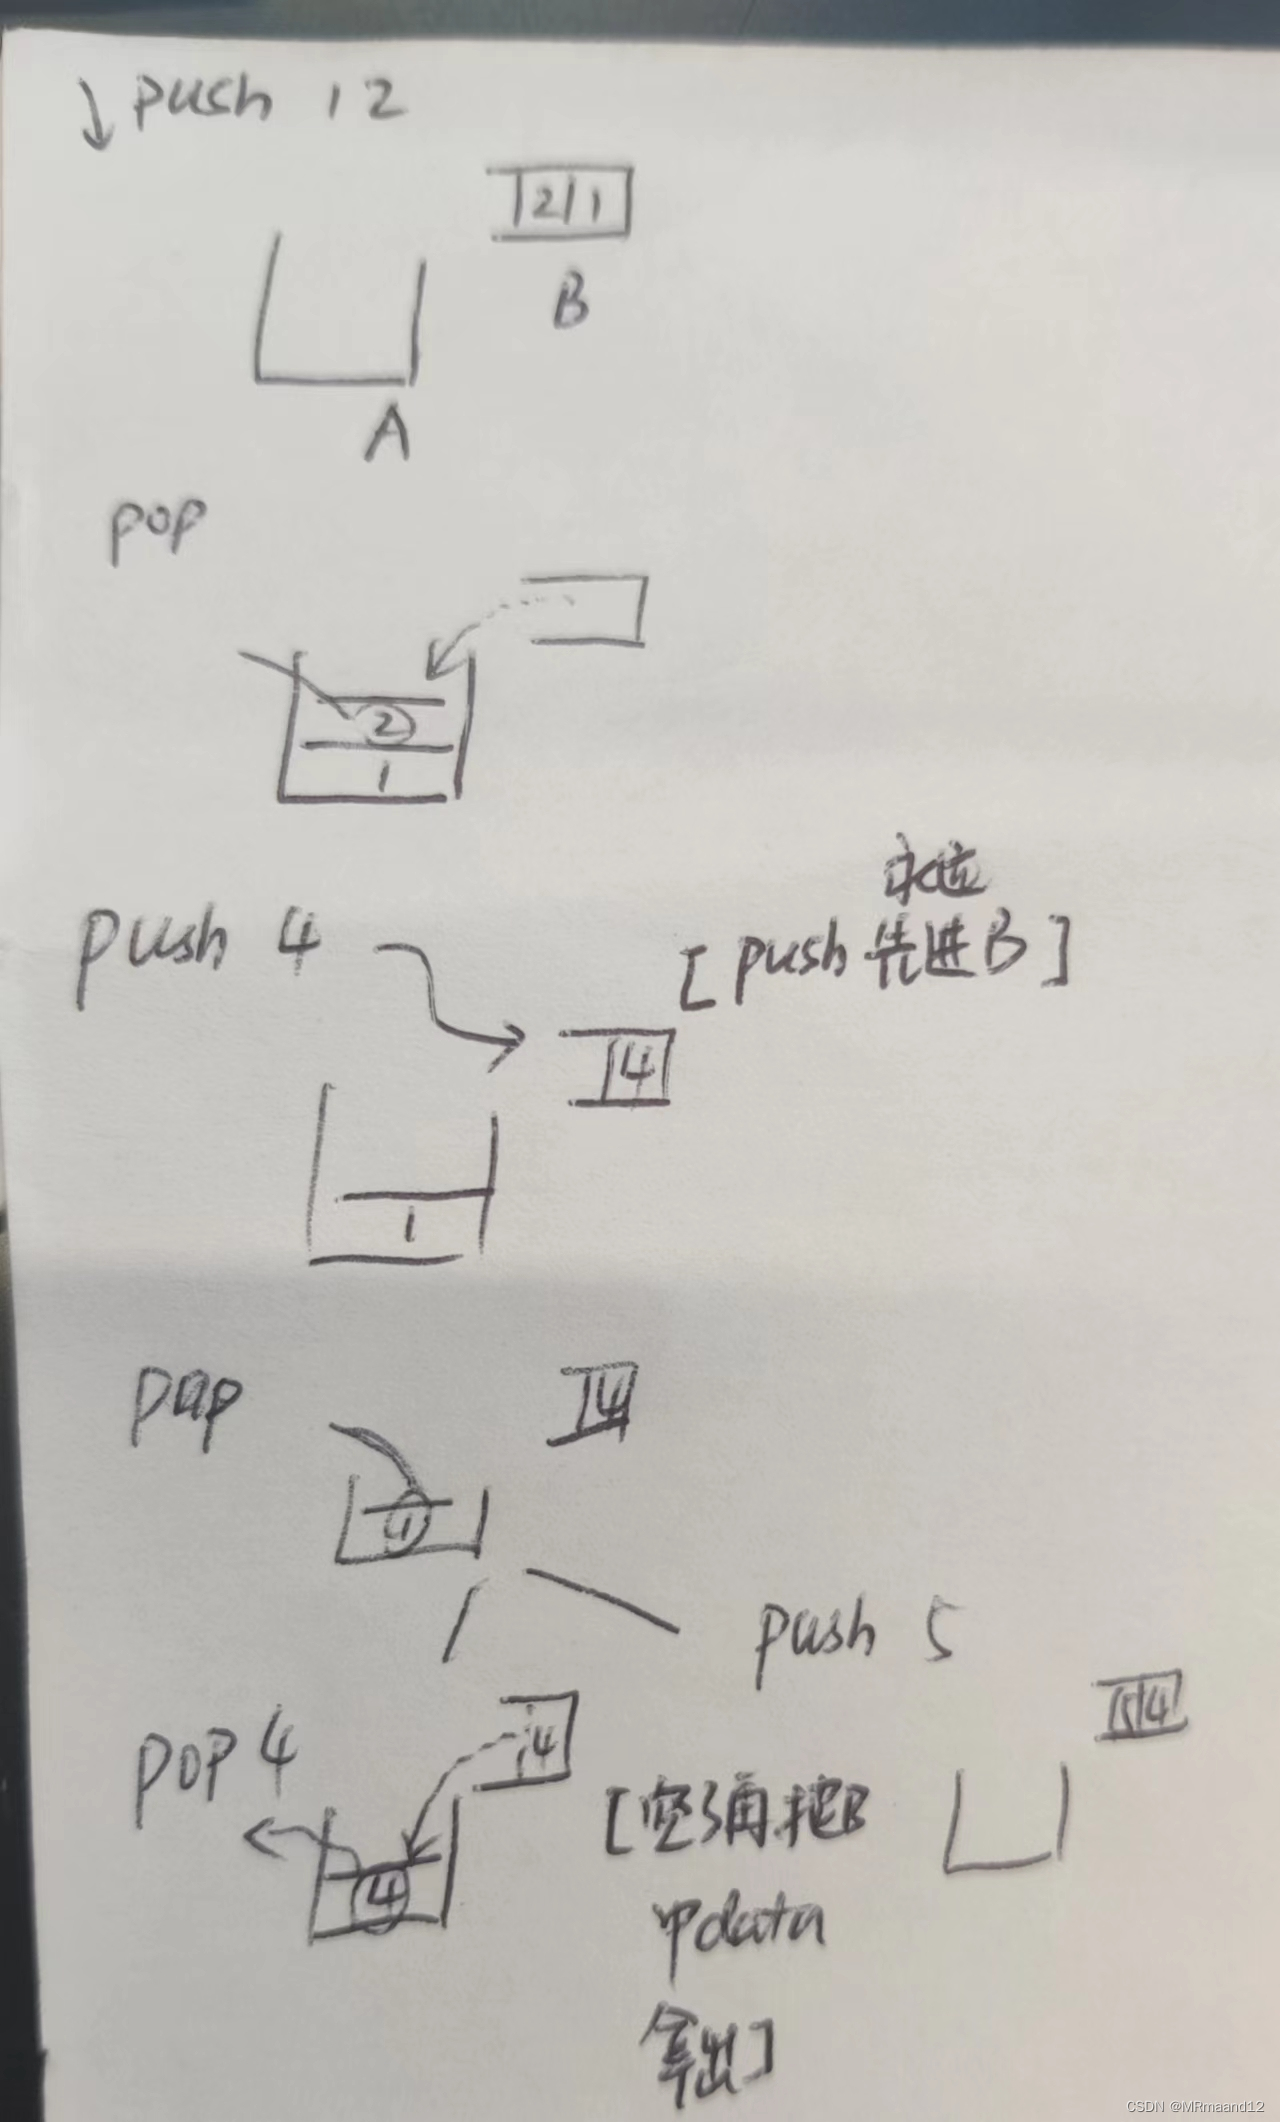 push 1 2
2 1
B
A
pop
2
1
push 4
永远
[push 先进B]
4
1
pop
4
1
push 5
5 4
pop 4
4
4
[空桶把B
中data
拿出]
CSDN @MRmaand12